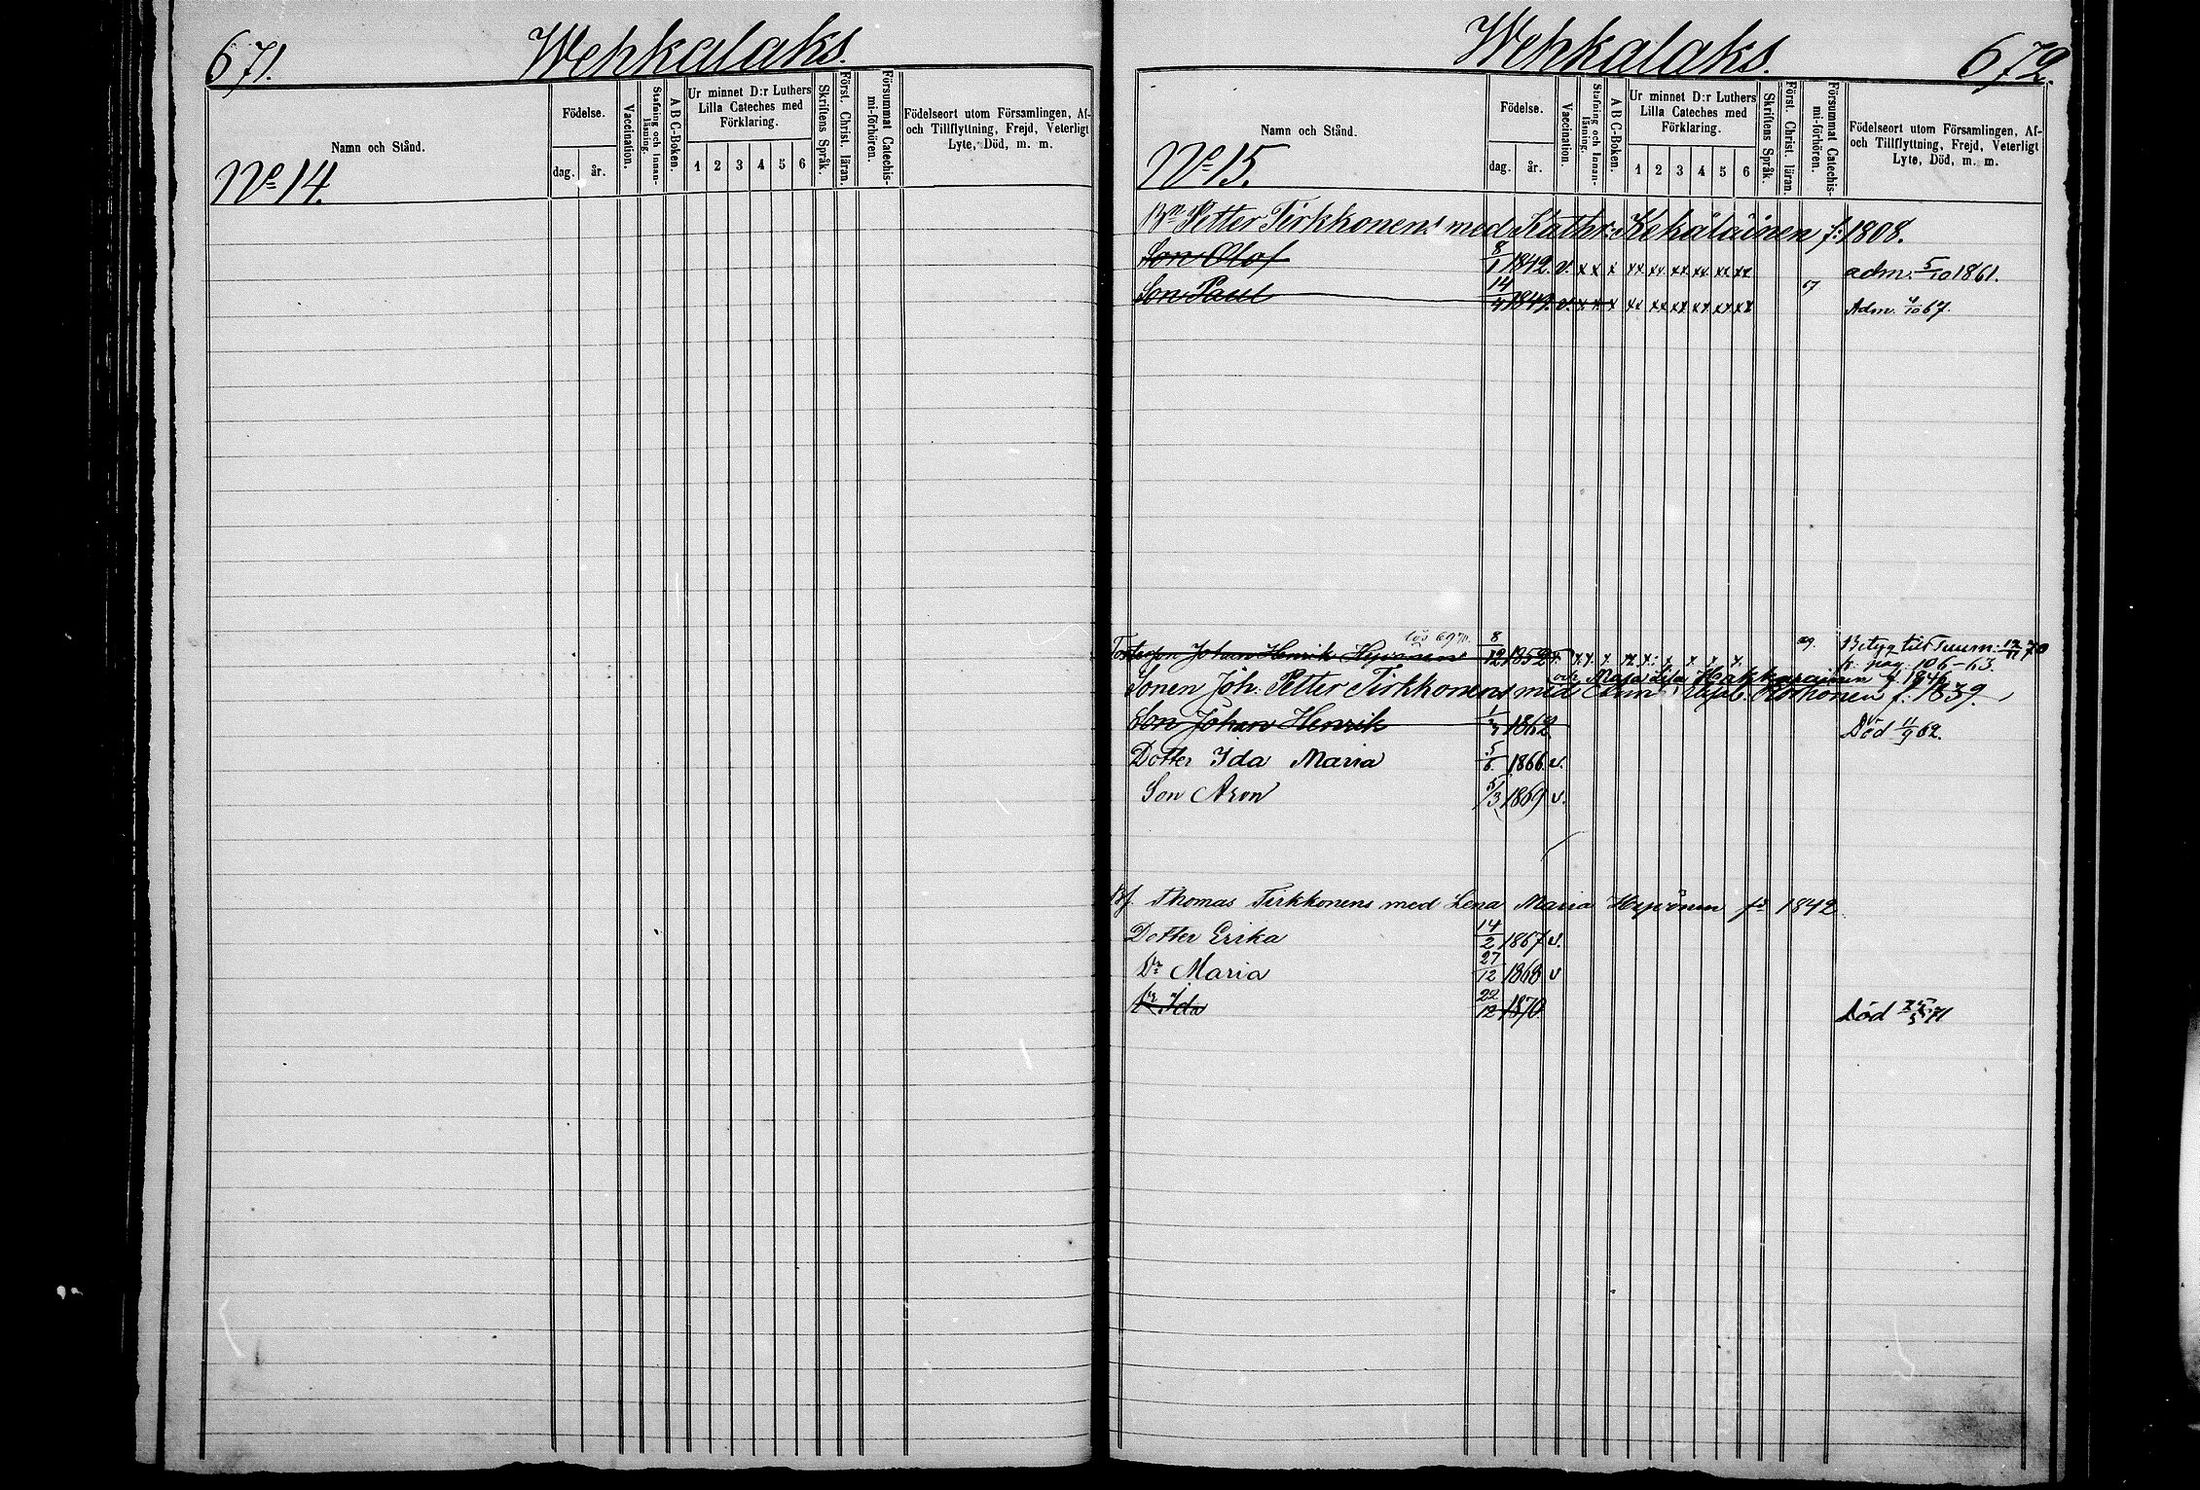 671. Wehkalaks.
Namn och Stånd.
Födelse.
dag. år.
Vaccination.
Stafning och Innan-läsning.
A B C-Boken.
Ur minnet D:r Luthers Lilla Cateches med Förklaring.
1 2 3 4 5 6
Skriftens Språk.
Först. Christ. läran.
Försummat Catechis-mi-förhören.
Födelseort utom Församlingen, Af- och Tillflyttning, Frejd, Veterligt Lyte, Död, m. m.
No 14.
Wehkalaks. 672.
Namn och Stånd.
Födelse.
dag. år.
Vaccination.
Stafning och Innan-läsning.
A B C-Boken.
Ur minnet D:r Luthers Lilla Cateches med Förklaring.
1 2 3 4 5 6
Skriftens Språk.
Först. Christ. läran.
Försummat Catechis-mi-förhören.
Födelseort utom Församlingen, Af- och Tillflyttning, Frejd, Veterligt Lyte, Död, m. m.
No 15.
Petter Tirkkonens med Kathr: Kekäläinen f: 1808.
Son Olof 8/1 1842. v. x x x xx xx xx xx xx xx adm. 5/10 1861.
Son Paul 14/4 1849. v. x x x xx xx xx xx xx xx Adm. 4/10 67.
Johan Henrik Hyvönen 8/12 1852 v. x x x x x x x x Betyg till Tuusn: 12/11 70
p. pag. 106-63.
och Maja Lisa Hakkarainen f. 1846
Sonen Joh: Petter Tirkkonens med f. 1839
Son Johan Henrik 1/7 1862 Död 11/9 62.
Dotter Ida Maria 5/6 1866. v.
Son Aron 5/3 1869 v.
Bf. Thomas Tirkkonens med Lena Maria Hyvönen fd 1842
Dotter Erika 14/2 1867 v.
Dr Maria 27/12 1868 v
Dr Ida 22/12 1870 Död 71